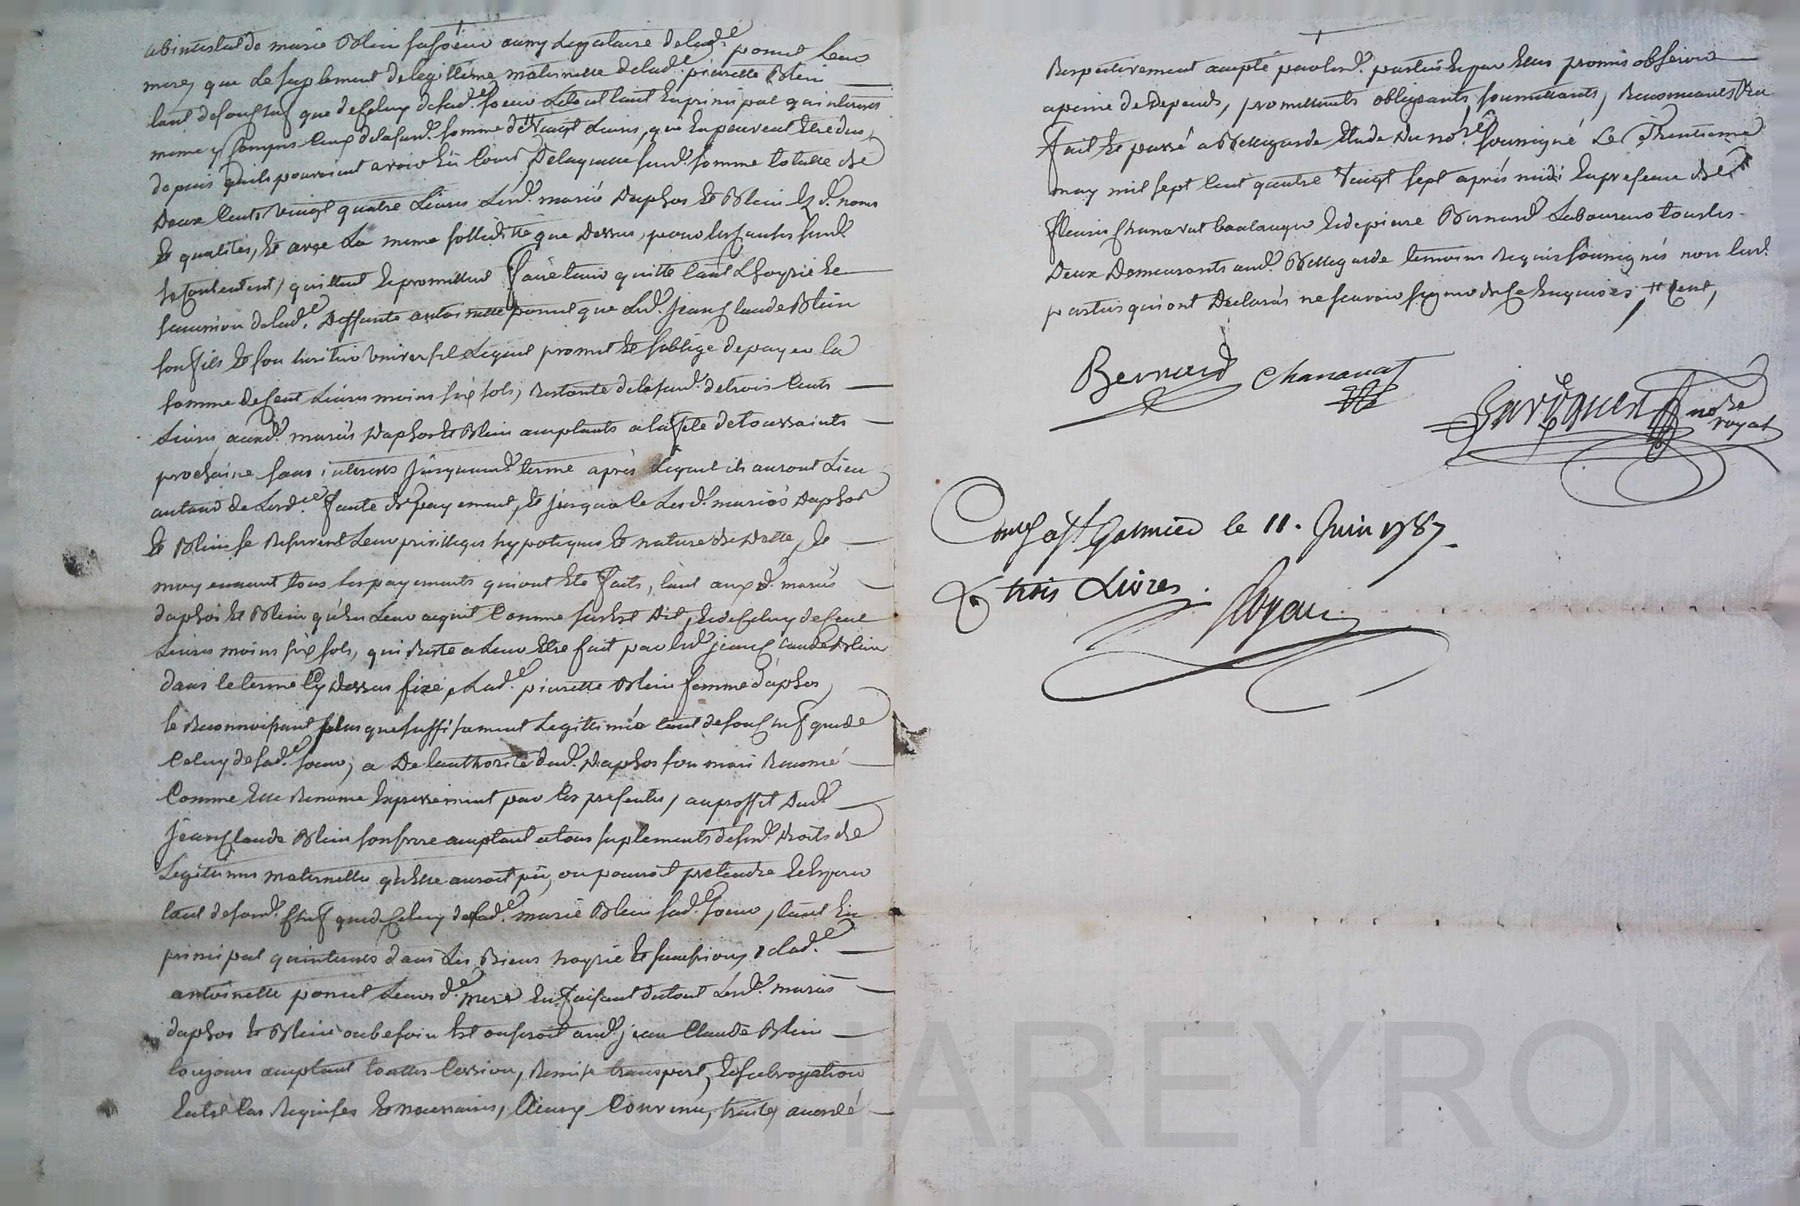 abintestat de marie Blein sa soeur aussy Legataire de lade poncet Leur
mere, que de suplement de legittime maternelle de lade pierrette Blein
tant de son chef que de celuy de sade soeur le tout tant en principal qu'interets
meme y compris ceux de la sus de somme de Vingt Livres, qui en peuvent etre dus,
depuis qu'ils pouvoient avoir eu cours, de laquelle sus de somme totalle de
Deux Cents vingt quatre Livres Lesd. mariés Daphos et Blein esd. noms
et qualités, et avec La meme sollidité que Dessus, pour les causes sus des
se contentent, quittent et promettent faire tenir quitte tant L'hoyrie et
succession de lade deffunte antoinette poncet que led. Jean Claude Blein
son fils et son heritier Universel Lequel promet et s'oblige de payer la
somme de cent Livres moins six sols, Restante de la sus de de trois Cents
Livres auxd. mariés Daphos et Blein acceptants a la fete de toussaints
prochaine sans interets jusqu'aud. terme après Lequel ils auront Lieu
autaud de Lorde faute de payement, et jusqu'a ce Lesd. mariés Daphos
et Blein se Reservent Leur privilleges hypoteques et nature de dette, et
moyennant tous les payements qui ont été faits, tant auxd. mariés
daphos et Blein qu'en Leur acquit Comme sus est Dit, et de celuy de cent
Livres moins six sols, qui Reste a Leur etre fait par led. jean Claude Blein
dans le terme Cy Dessus fixé, Lade pierrette Blein femme daphos,
se Reconnoissant plus que suffisamment Legittimée tant de son chef que de
Celuy de sade soeur, a De L'authorité dud. Daphos son mari Renoncé
Comme Elle Renonce Expressement par les presentes, au proffit Dud.
Jean Claude Blein son frere acceptant a tous suplements desd. Droits de
Legitimes maternelle qu'elle auroit pu, ou pourroit pretendre et Esperer
tant de sond. chef que de Celuy de lade marie Blein sade soeur, tant en
principal qu'interets dans Les Biens hoyrie et succession de lade
antoinette poncet Leurde mere En faisant du tout Lesd. mariés
daphos et Blein au besoin Est ou seroit aud. jean Claude Blein
toujours acceptant toattes Cession, Remise transport, et subrogation
Entre Cas Requises et necessaires, Ainsy Convenu, traité, accordé
Respectivement accepté par lesd. parties et par Elles promis observer
a peine de Depends, promettants obligeants, soumettants, Renonceants &a
Fait et passé a Bellegarde Etude Du nore soussigné Le Trentieme
may mil sept Cent quatre Vingt sept après midi En presence de Sr
fleuris Chanavat boulanger et de pierre Bernard Laboureur tous les
Deux Demeurants aud. Bellegarde temoins Requis soussignés non Lesd.
parties qui ont Declarés ne scavoir signer de ce Enquises,
Bernard Chanavat
nore
royal
Con.lé à St Galmier le 11. Juin 1787.
R. trois Livres.